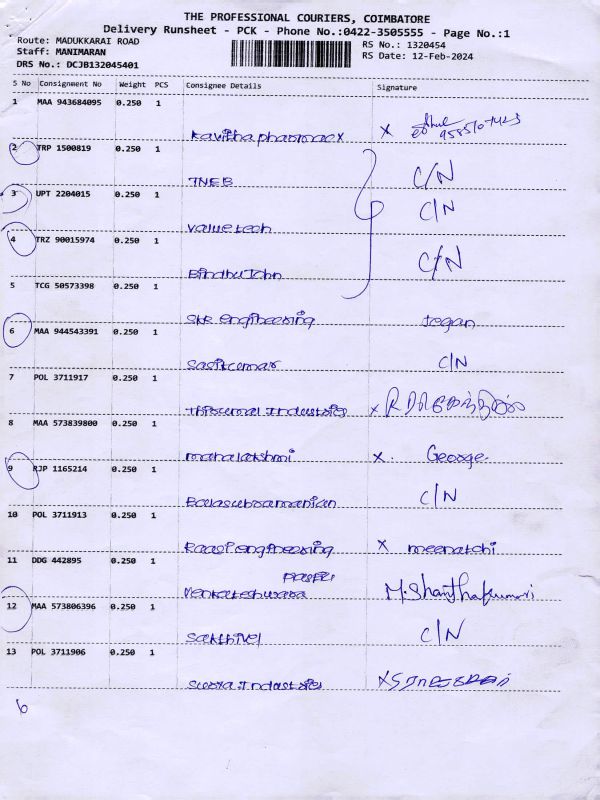 THE PROFESSIONAL COURIERS, COIMBATORE
Delivery Runsheet - PCK - Phone No.:0422-3505555 - Page No.:1
Route: MADUKKARAI ROAD
RS No.: 1320454
Staff: MANIMARAN
RS Date: 12-Feb-2024
DRS No.: DCJB132045401
S No Consignment No Weight PCS Consignee Details Signature
1 MAA 943684095 0.250 1
Kavitha pharmacex X
2 TRP 1500819 0.250 1
TNEB C/N
3 UPT 2204015 0.250 1
Value tech C/N
4 TRZ 90015974 0.250 1
Bindhu John C/N
5 TCG 50573398 0.250 1
SKR engineering Jegan
6 MAA 944543391 0.250 1
Sasikumar C/N
7 POL 3711917 0.250 1
Thirumal Industries X
8 MAA 573839800 0.250 1
mahalakshmi X. George
9 RJP 1165214 0.250 1
Balasubramanian C/N
10 POL 3711913 0.250 1
Raasi engineering X meenatchi
11 DDG 442895 0.250 1
Venkateshwara M.Shanthakumari
12 MAA 573806396 0.250 1
Sakthivel C/N
13 POL 3711906 0.250 1
Surya Industries X
6